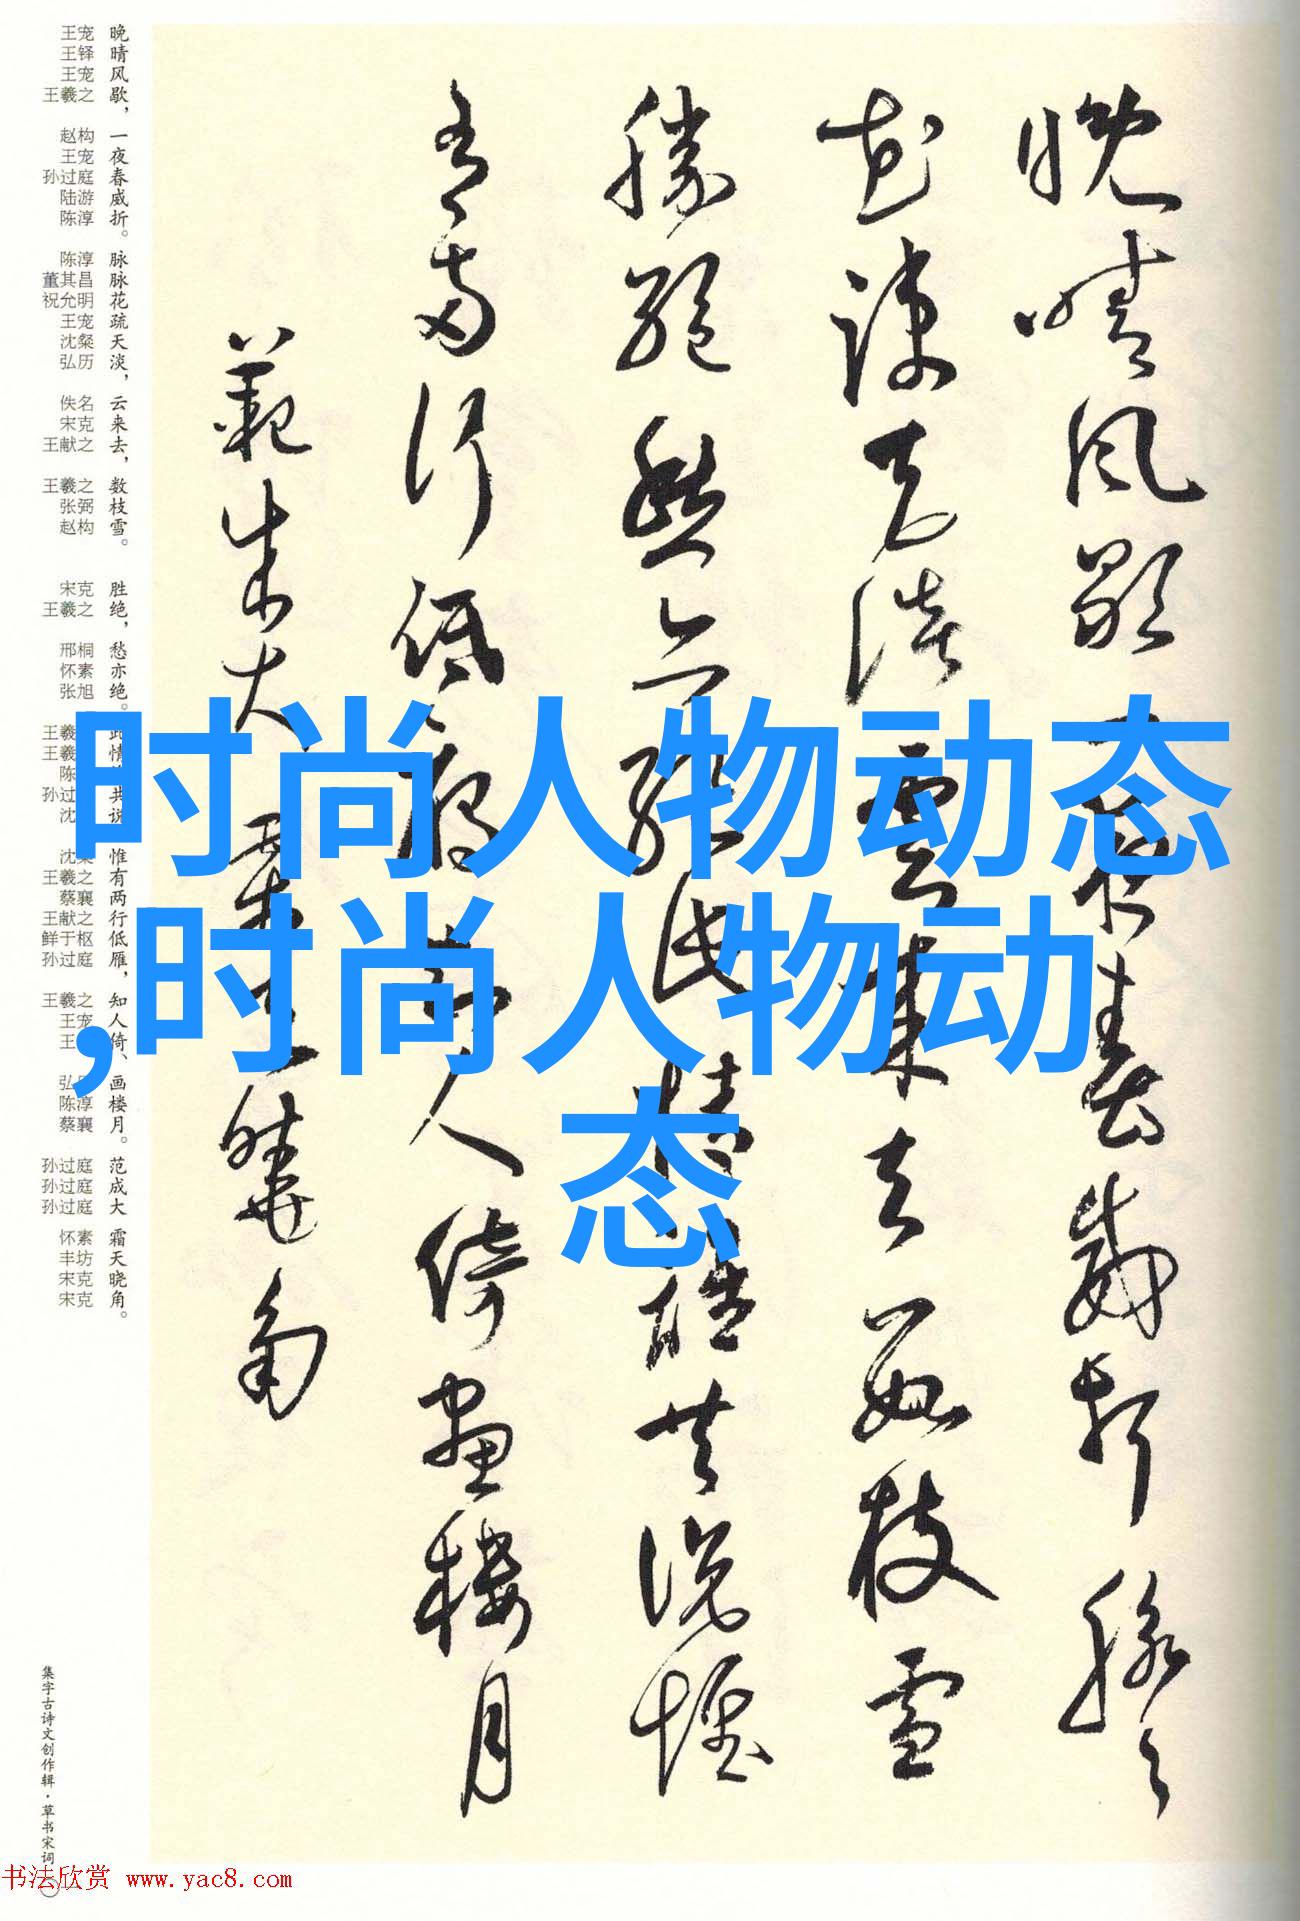 晚晴风歇一夜春威折脉脉
花疏天淡云来去数枝雪
胜绝愁亦绝此情谁共说惟
有两行低雁知人倚画楼月
范成大霜天晓角
晚晴风歇，一夜春威折。脉脉花疏天淡，云来去，数枝雪。胜绝，愁亦绝。此情 共说 惟有两行低雁，知人倚、画楼月。范成大 霜天晓角。
王宠
王铎
王宠
王羲之
赵构
王宠
孙过庭
陆游
陈淳
陈淳
董其昌
祝允明
王宠
沈粲
弘历
佚名
宋克
王献之
王羲之
张弼
赵构
宋克
王羲之
邢桐
怀素
张旭
王羲
王羲
陈
孙过
沈
沈
王羲之
蔡襄
王献之
鲜于枢
孙过庭
王羲之
王宠
王
弘
陈淳
蔡襄
孙过庭
孙过庭
孙过庭
怀素
丰坊
宋克
宋克
时尚人物动态
,时尚人物动
态
集字古诗文创作辑·草书宋词
书法欣赏 www.yac8.com